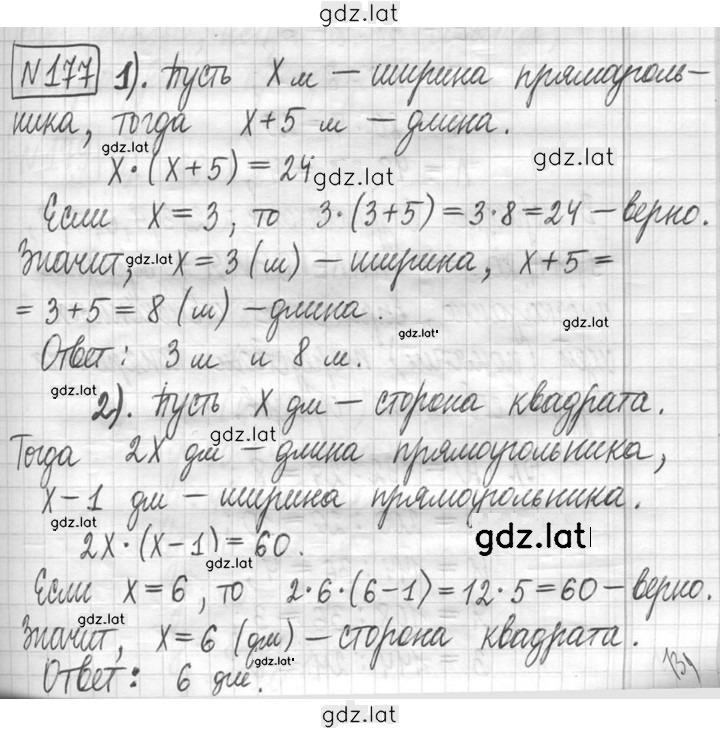 gdz.lat
№177 1). Пусть x м – ширина прямоуголь-
ника, тогда x+5 м – длина.
gdz.lat
gdz.lat
x·(x+5)=24
gdz.lat
Если x=3, то 3·(3+5)=3·8=24 – верно.
Значит, x=3 (м) – ширина, x+5=
gdz.lat
=3+5=8 (м) – длина.
gdz.lat
gdz.lat
Ответ: 3 м и 8 м.
gdz.lat
2). Пусть x дм – сторона квадрата.
gdz.lat
Тогда 2x дм – длина прямоугольника,
x–1 дм – ширина прямоугольника.
gdz.lat
gdz.lat
2x·(x–1)=60.
gdz.lat
Если x=6, то 2·6·(6–1)=12·5=60 – верно.
gdz.lat
Значит, x=6 (дм) – сторона квадрата.
gdz.lat
Ответ: 6 дм.
gdz.lat